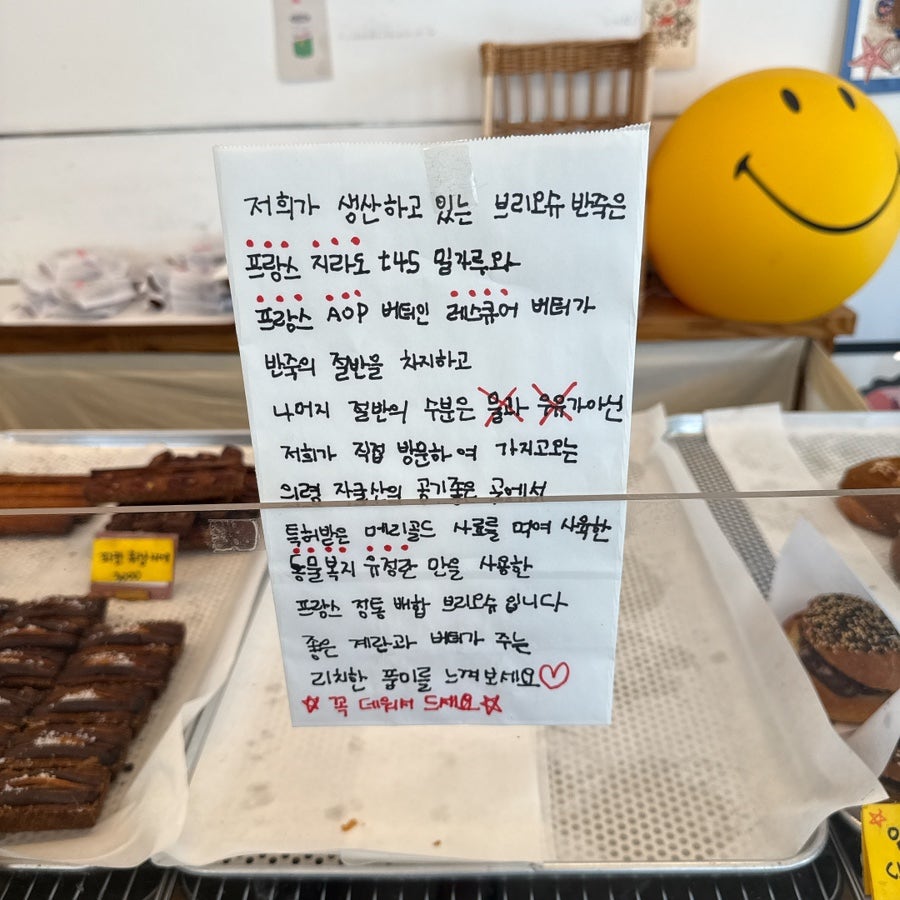 저희가 생산하고 있는 브리오슈 반죽은
프랑스 지라도 t45 밀가루와
프랑스 AOP 버터인 레스큐어 버터가
반죽의 절반을 차지하고
나머지 절반의 수분은 물과 우유가아닌
저희가 직접 방문하여 가지고오는
의령 자굴산의 공기좋은 곳에서
특허받은 메리골드 사료를 먹여 사육한
동물복지 유정란 만을 사용한
프랑스 정통 배합 브리오슈 입니다
좋은 계란과 버터가 주는
리치한 풍미를 느껴보세요♡
☆ 꼭 데워서 드세요 ☆